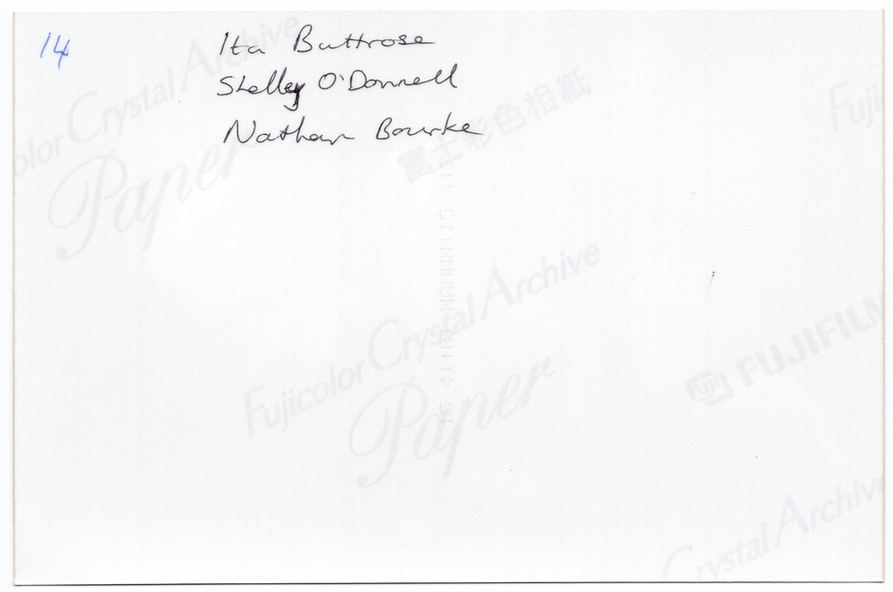 14
Ita Buttrose
Shelley O'Donnell
Nathan Bourke
Fujicolor Crystal Archive
Paper
富士彩色相紙
Fujicolor Crystal Archive
Paper
FUJIFILM
Crystal Archive